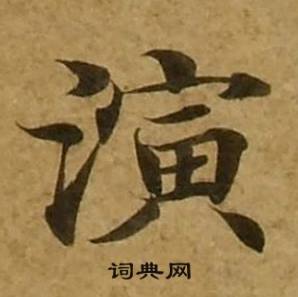 演
词典网